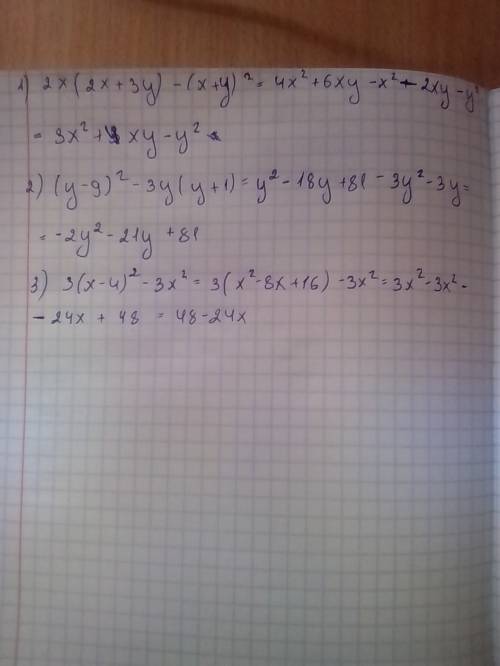 1) 2x(2x+3y) -(x+y)² = 4x²+6xy -x²-2xy -y²
= 3x²+4xy-y²
2) (y-9)²-3y(y+1)=y²-18y+81-3y²-3y=
= -2y²-21y+81
3) 3(x-4)²-3x²=3(x²-8x+16)-3x²=3x²-3x²-
-24x+48 = 48-24x